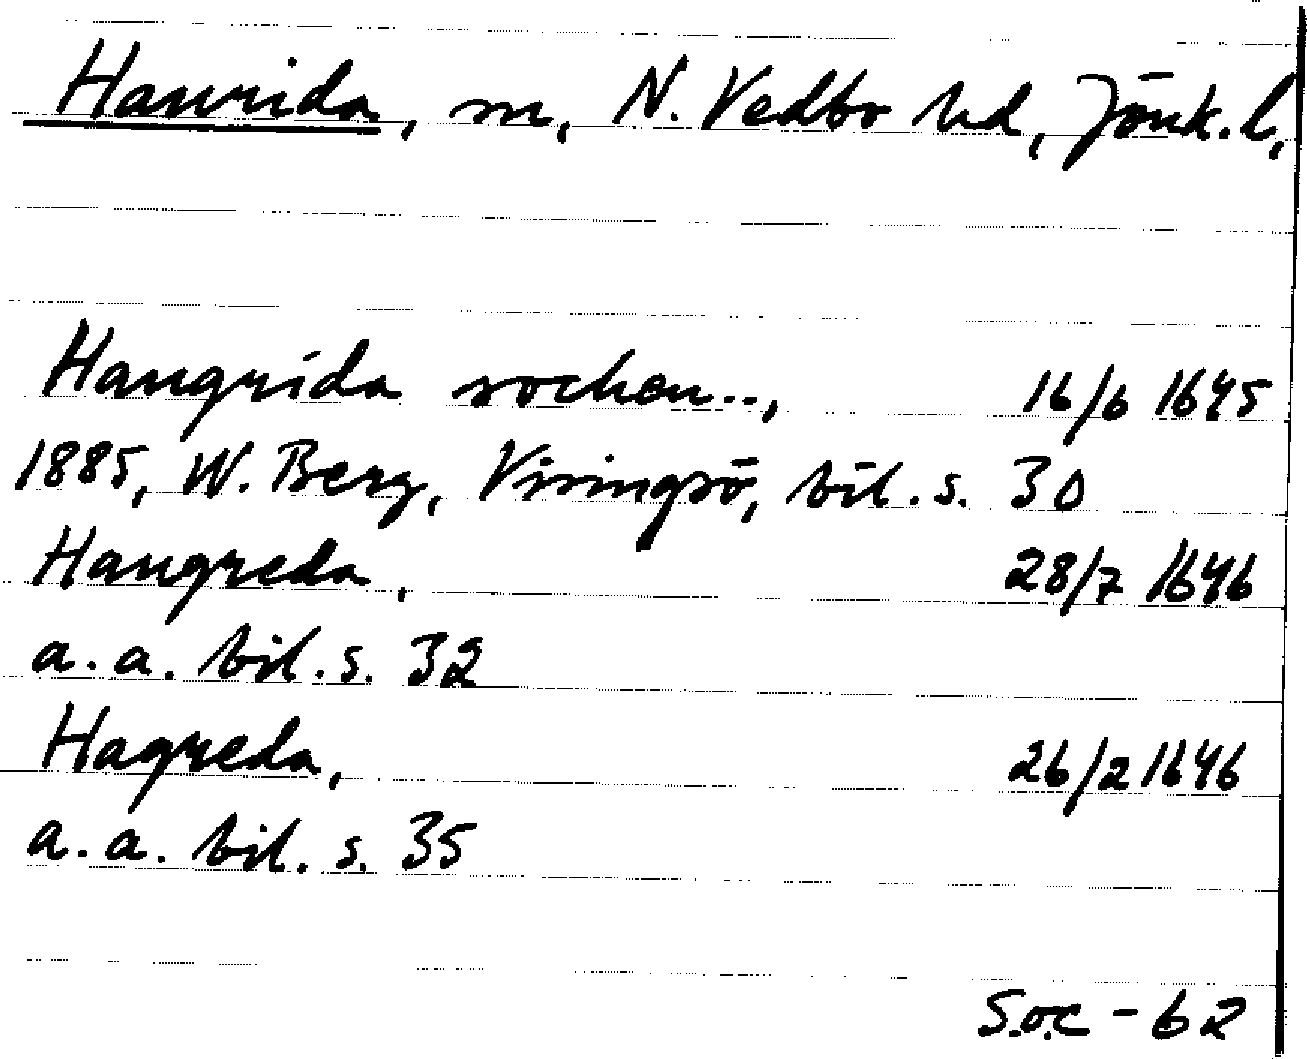 Haurida, sn, N. Vedbo hd, Jönk. l,
Haugrida sochen..,   16/6 1645
1885, W. Berg, Visingsö, bil. s. 30
Haugreda,   28/7 1646
a. a. bil. s. 32
Hagreda,   26/2 1646
a. a. bil. s. 35
S.o.c - 62